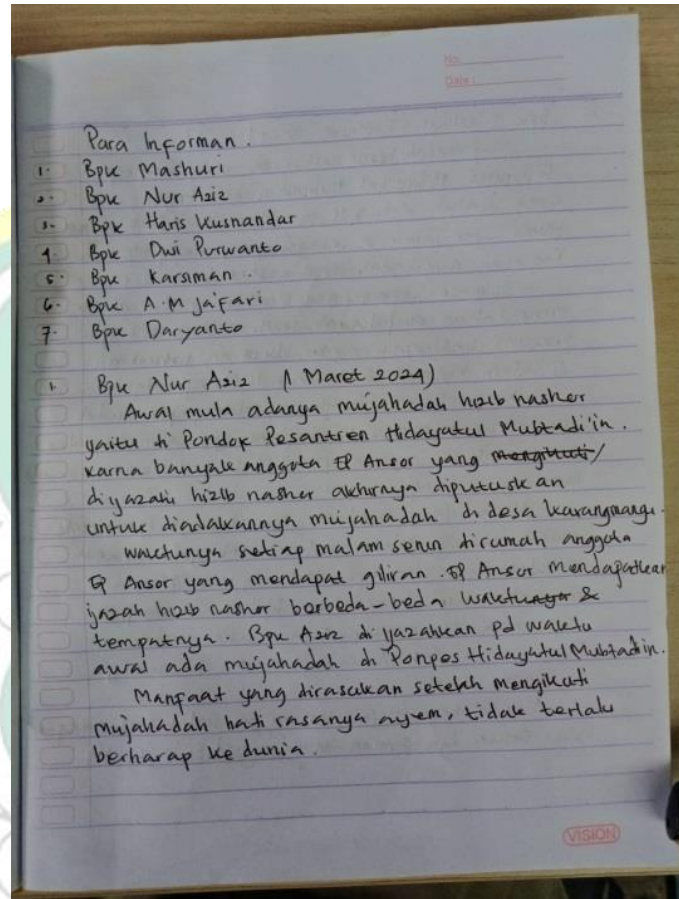 No.
Date :
Para Informan.
1. Bpk Mashuri
2. Bpk Nur Aziz
3. Bpk Haris Kusnandar
4. Bpk Dwi Purwanto
5. Bpk Karsiman.
6. Bpk A.M Ja'fari
7. Bpk Daryanto
1. Bpk Nur Aziz (1 Maret 2024)
Awal mula adanya mujahadah hizib nashor
yaitu di Pondok Pesantren Hidayatul Mubtadi'in.
karna banyak anggota GP Ansor yang mengikuti/
diyazahi hizib nashor akhirnya diputuskan
untuk diadakannya mujahadah di desa karangmangu.
waktunya setiap malam senin dirumah anggota
GP Ansor yang mendapat giliran. GP Ansor mendapatkan
jazah hizib nashor berbeda-beda waktunya &
tempatnya. Bpk Aziz di yazahkan pd waktu
awal ada mujahadah di Ponpes Hidayatul Mubtadiin.
Manfaat yang dirasakan setelah mengikuti
mujahadah hati rasanya ayem, tidak terlalu
berharap ke dunia.
VISION